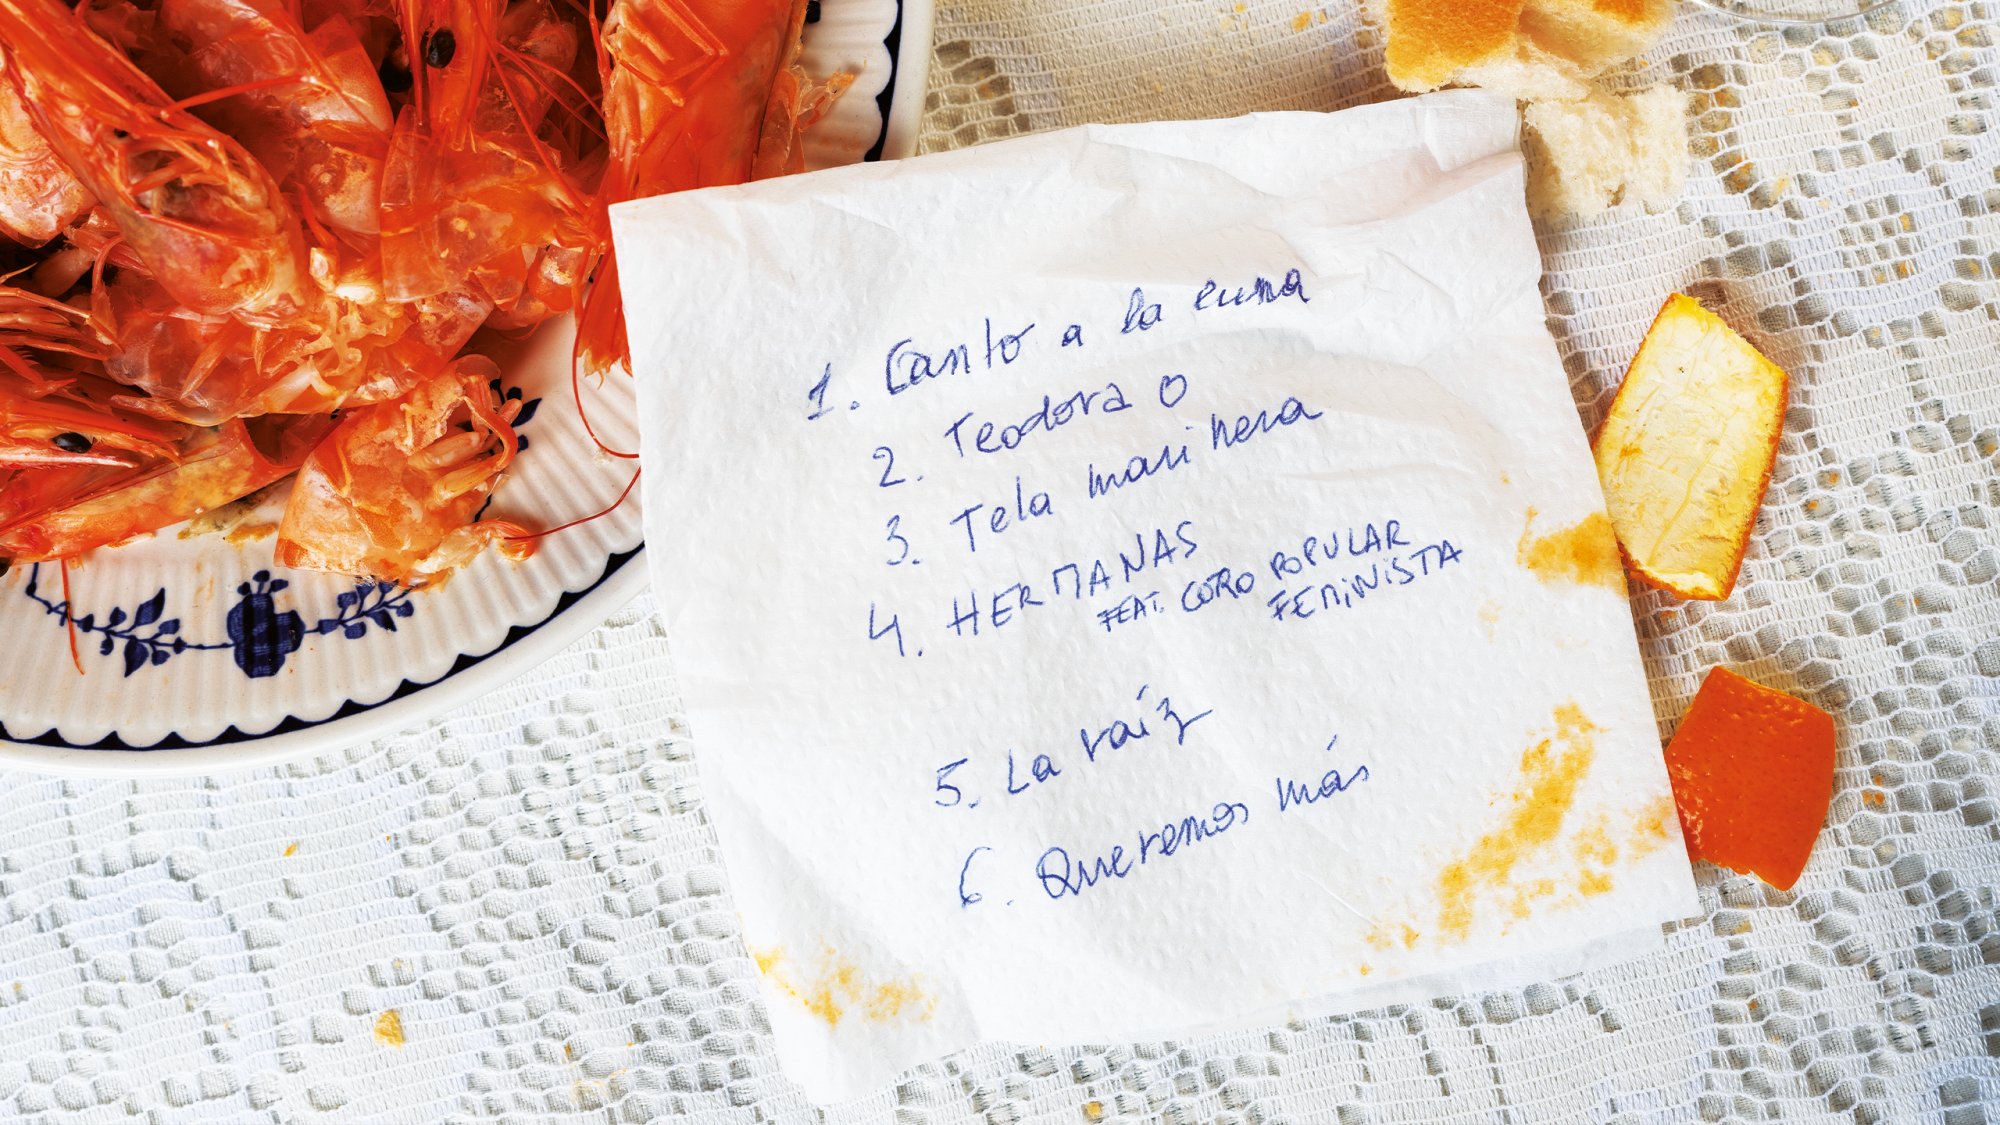 1. Canto a la cuna
2. Teodora O
3. Tela marinera
4. HERMANAS
FEAT. CORO POPULAR
FEMINISTA
5. La raíz
6. Queremos más